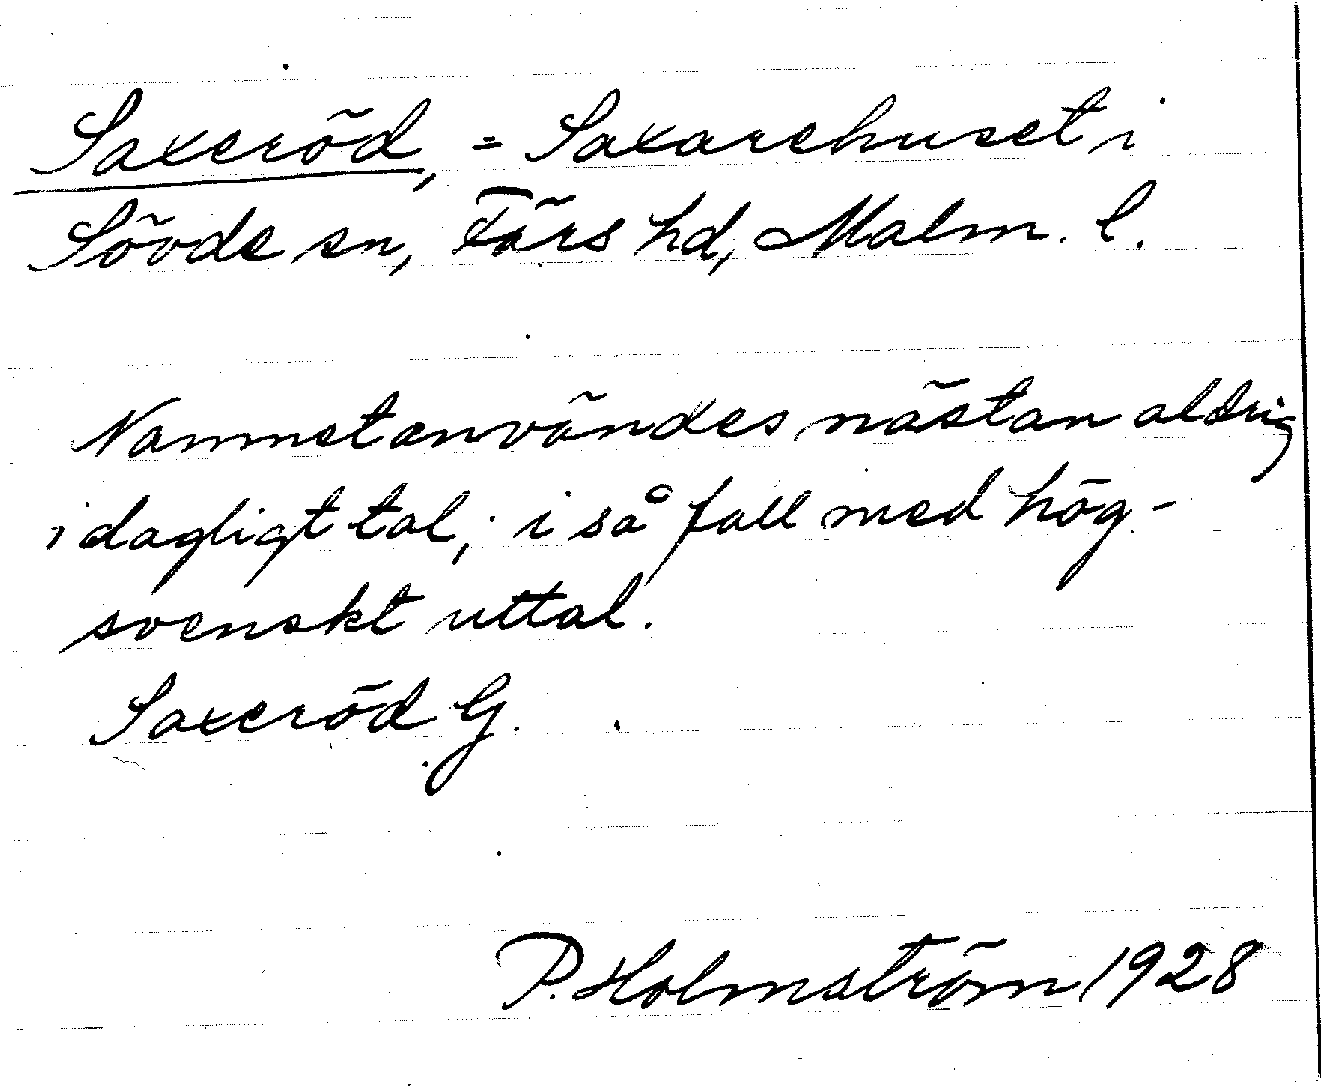 Saxeröd, = Saxarehuset i
Sövde sn, Färs hd, Malm. l.
Namnet användes nästan aldrig
i dagligt tal; i så fall med hög-
svenskt uttal.
Saxeröd G.
P. Holmström 1928